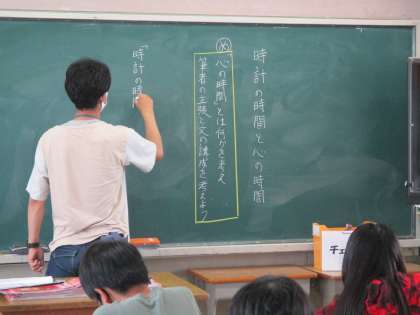 時計の時間と心の時間
め
「心の時間」とは何かを考え
筆者の主張と文の構成を考えよう
「時計の時
チェ